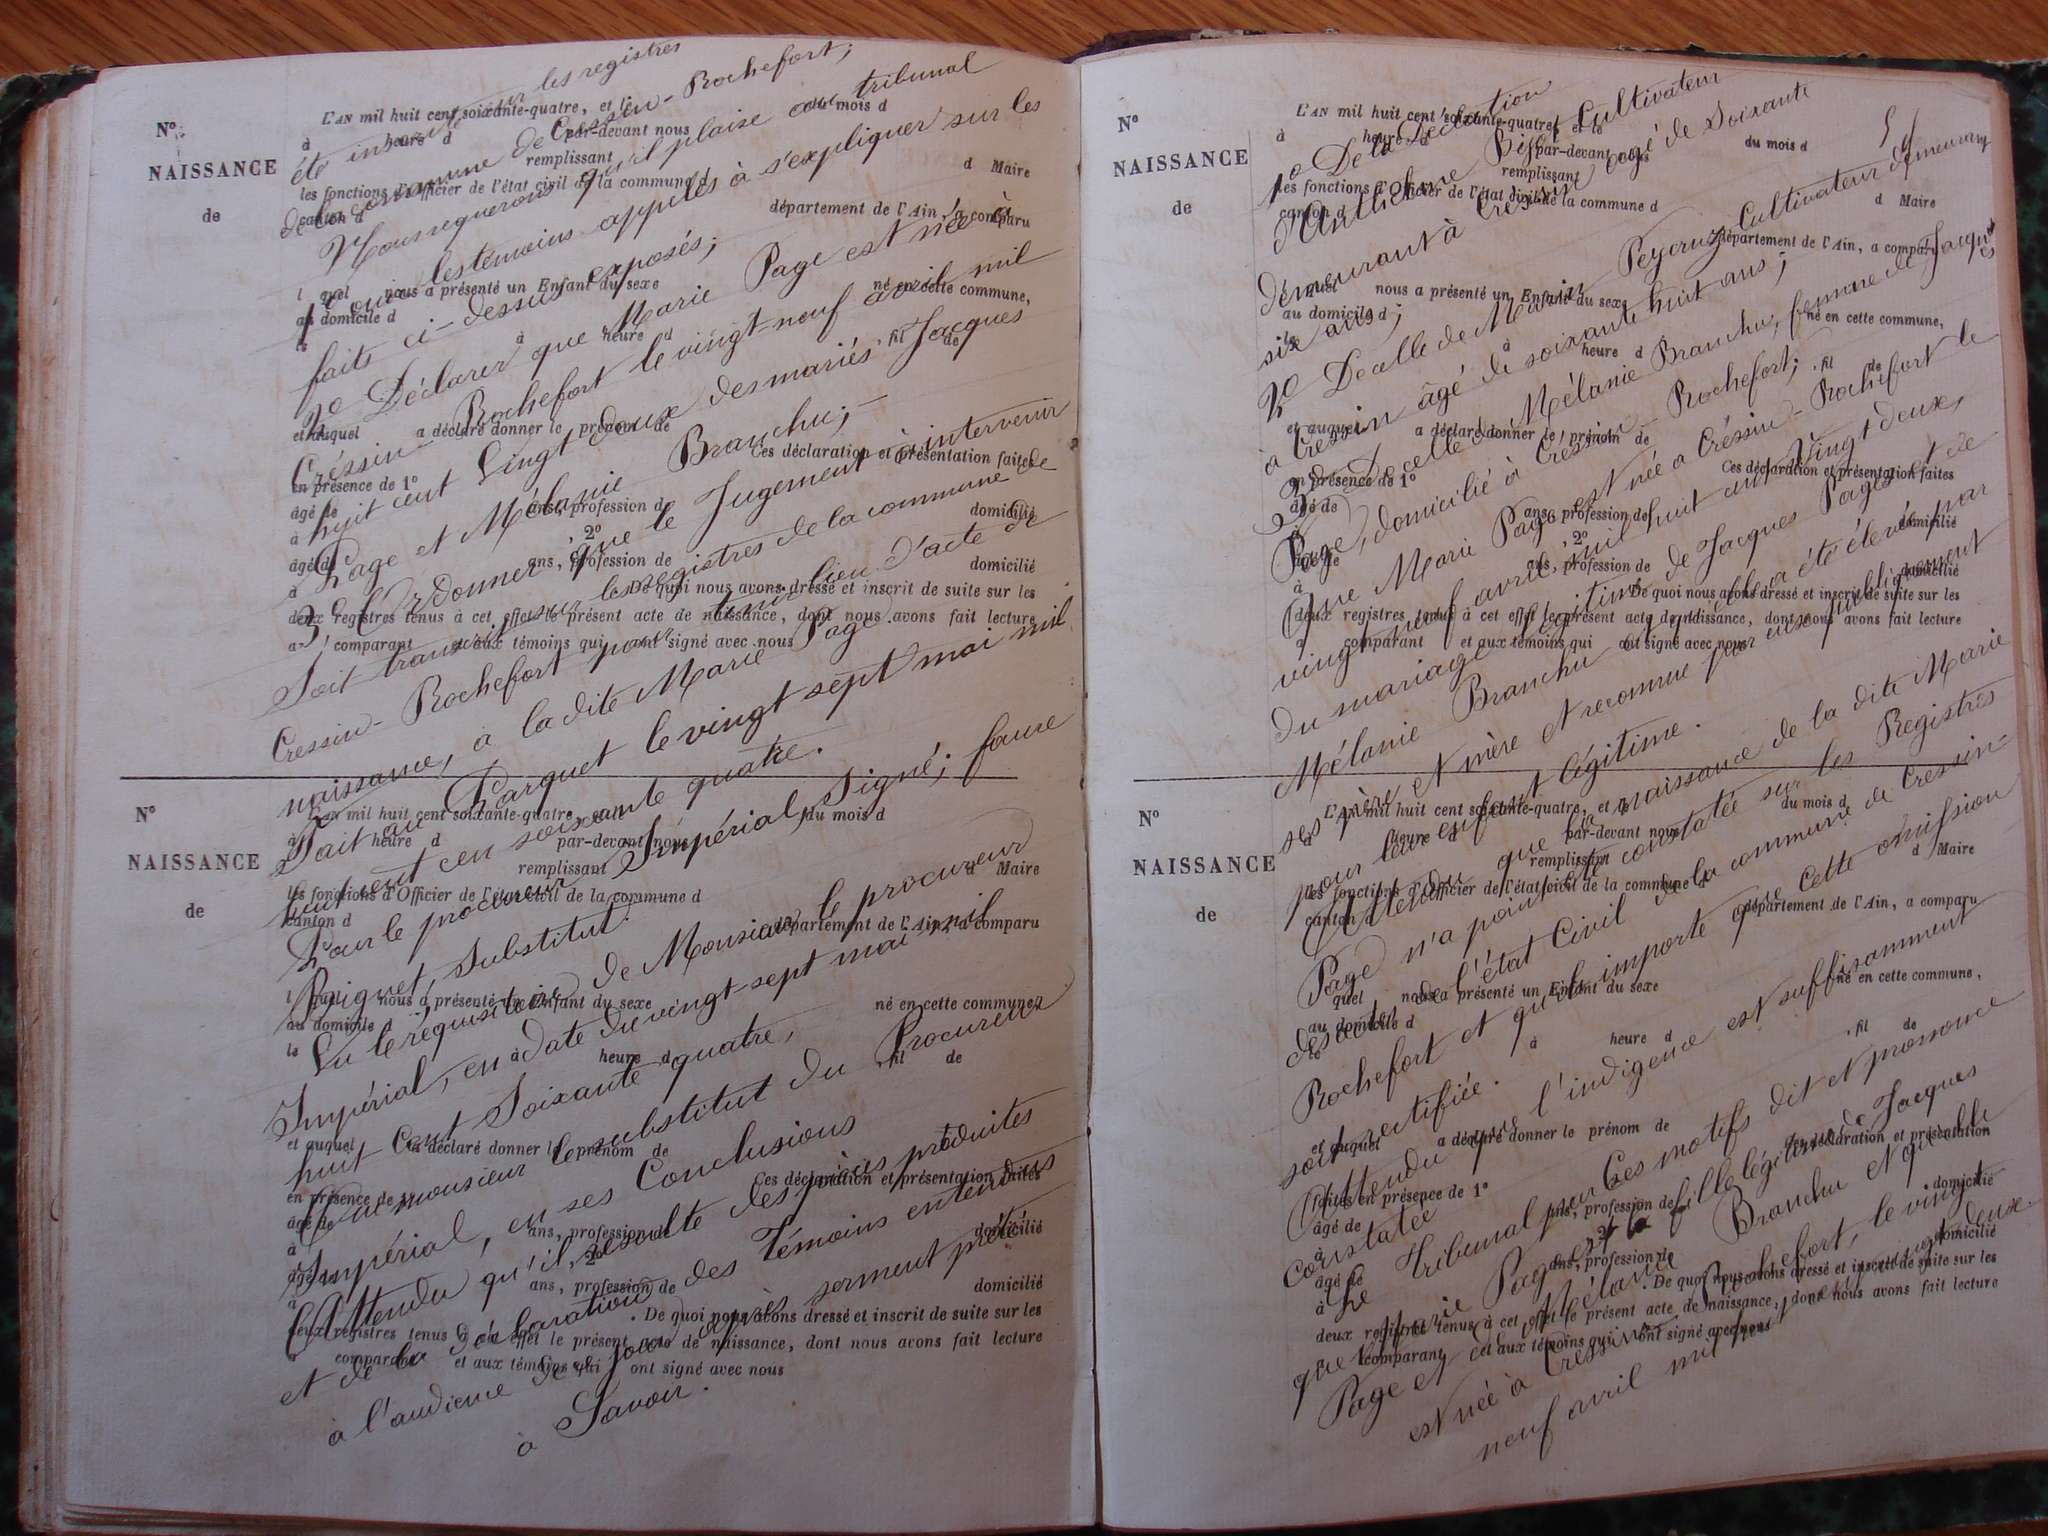 été inscrite sur les registres
de la commune de Cressin-Rochefort;
Nous requerons qu'il plaise au tribunal
1º ouir les témoins appelés à s'expliquer sur les
faits ci-dessus exposés;
2º Déclarer que Marie Page est née à
Créssin-Rochefort le vingt-neuf avril mil
huit cent Vingt deux des mariés Jacques
Page et Mélanie Branchu;-
3º Ordonner que le Jugement à intervenir
Soit transcrit sur les registres de la commune de
Cressin-Rochefort pour tenir lieu d'acte de
naissance, à la dite Marie Page
Fait au Parquet le vingt sept mai mil
huit cent soixante quatre.
Pour le procureur Impérial, Signé; faure
Piguet, Substitut.
Vu le réquisitoire de Monsieur le procureur
Impérial, en date du vingt-sept mai mil
huit cent Soixante quatre,
Ouï monsieur le substitut du Procureur
Impérial, en ses Conclusions
Attendu qu'il résulte des pièces produites
et de la déclaration des Témoins entendus
à l'audience de ce jour après serment prêté
à Savoir.
Nº
NAISSANCE
de
L'AN mil huit cent soixante-quatre, et l
du mois d
à heure d par-devant nous
remplissant
les fonctions d'Officier de l'état civil de la commune d
d Maire
canton d département de l'Ain, a comparu
l quel nous a présenté un Enfant du sexe né en cette commune,
au domicile d
le à heure d , fil de
et auquel a déclaré donner le prénom de
Ces déclaration et présentation faites
en présence de 1º
âgé de ans, profession de domicilié
à , 2º
âgé de ans, profession de domicilié
à . De quoi nous avons dressé et inscrit de suite sur les
deux registres tenus à cet effet le présent acte de naissance, dont nous avons fait lecture
a comparant et aux témoins qui ont signé avec nous
Nº
NAISSANCE
de
L'AN mil huit cent soixante-quatre, et l
du mois d
à heure d par-devant nous
remplissant
les fonctions d'Officier de l'état civil de la commune d
d Maire
canton d département de l'Ain, a comparu
l quel nous a présenté un Enfant du sexe né en cette commune,
au domicile d
le à heure d , fil de
et auquel a déclaré donner le prénom de
Ces déclaration et présentation faites
en présence de 1º
âgé de ans, profession de domicilié
à , 2º
âgé de ans, profession de domicilié
à . De quoi nous avons dressé et inscrit de suite sur les
deux registres tenus à cet effet le présent acte de naissance, dont nous avons fait lecture
a comparant et aux témoins qui ont signé avec nous
1º De la Déclaration
d'Anthelme Cultivateur
demeurant à Cressin âgé de Soixante
six ans;
2º De celle de Marin Peyernz Cultivateur demeurant
à Cressin âgé de soixante huit ans;
3º De celle de Mélanie Branchu, femme de Jacques
Page, domicilié à Cressin-Rochefort;
Que Marie Page est née a Créssin-Rochefort le
vingt neuf avril mil huit cent Vingt deux,
du mariage légitime de Jacques Page et de
Mélanie Branchu qu'elle a été élevée par
ses père et mère et reconnue par eux publiquement
pour leur enfant légitime.
Attendu que la naissance de la dite Marie
Page n'a point été constatée sur les Registres
des actes de l'état Civil de la commune de Cressin-
Rochefort et qu'il importe que cette omission
soit rectifiée.
Attendu que l'indigence est suffisamment
constatée
Le Tribunal par Ces motifs dit et prononce
que Marie Page est la fille légitime de Jacques
Page et de Mélanie Branchu et qu'elle
est née à Cressin-Rochefort, le vingt-
neuf avril mil huit cent vingt deux.
Nº
NAISSANCE
de
L'AN mil huit cent soixante-quatre, et le
du mois d
à heure d par-devant nous
remplissant
les fonctions d'Officier de l'état civil de la commune d
d Maire
canton d département de l'Ain, a comparu
l quel nous a présenté un Enfant du sexe
au domicile d né en cette commune,
le à heure d , fil de
et auquel a déclaré donner le prénom de
Ces déclaration et présentation faites
en présence de 1º
âgé de ans, profession de domicilié
à , 2º
âgé de ans, profession de domicilié
à . De quoi nous avons dressé et inscrit de suite sur les
deux registres tenus à cet effet le présent acte de naissance, dont nous avons fait lecture
a comparant et aux témoins qui ont signé avec nous
Nº
NAISSANCE
de
L'AN mil huit cent soixante-quatre, et l
du mois d
à heure d par-devant nous
remplissant
les fonctions d'Officier de l'état civil de la commune d
d Maire
canton d département de l'Ain, a comparu
l quel nous a présenté un Enfant du sexe né en cette commune,
au domicile d
le à heure d , fil de
et auquel a déclaré donner le prénom de
Ces déclaration et présentation
faites en présence de 1º
âgé de ans, profession de domicilié
à , 2º
âgé de ans, profession de domicilié
à . De quoi nous avons dressé et inscrit de suite sur les
deux registres tenus à cet effet le présent acte de naissance, dont nous avons fait lecture
a comparant et aux témoins qui ont signé avec nous